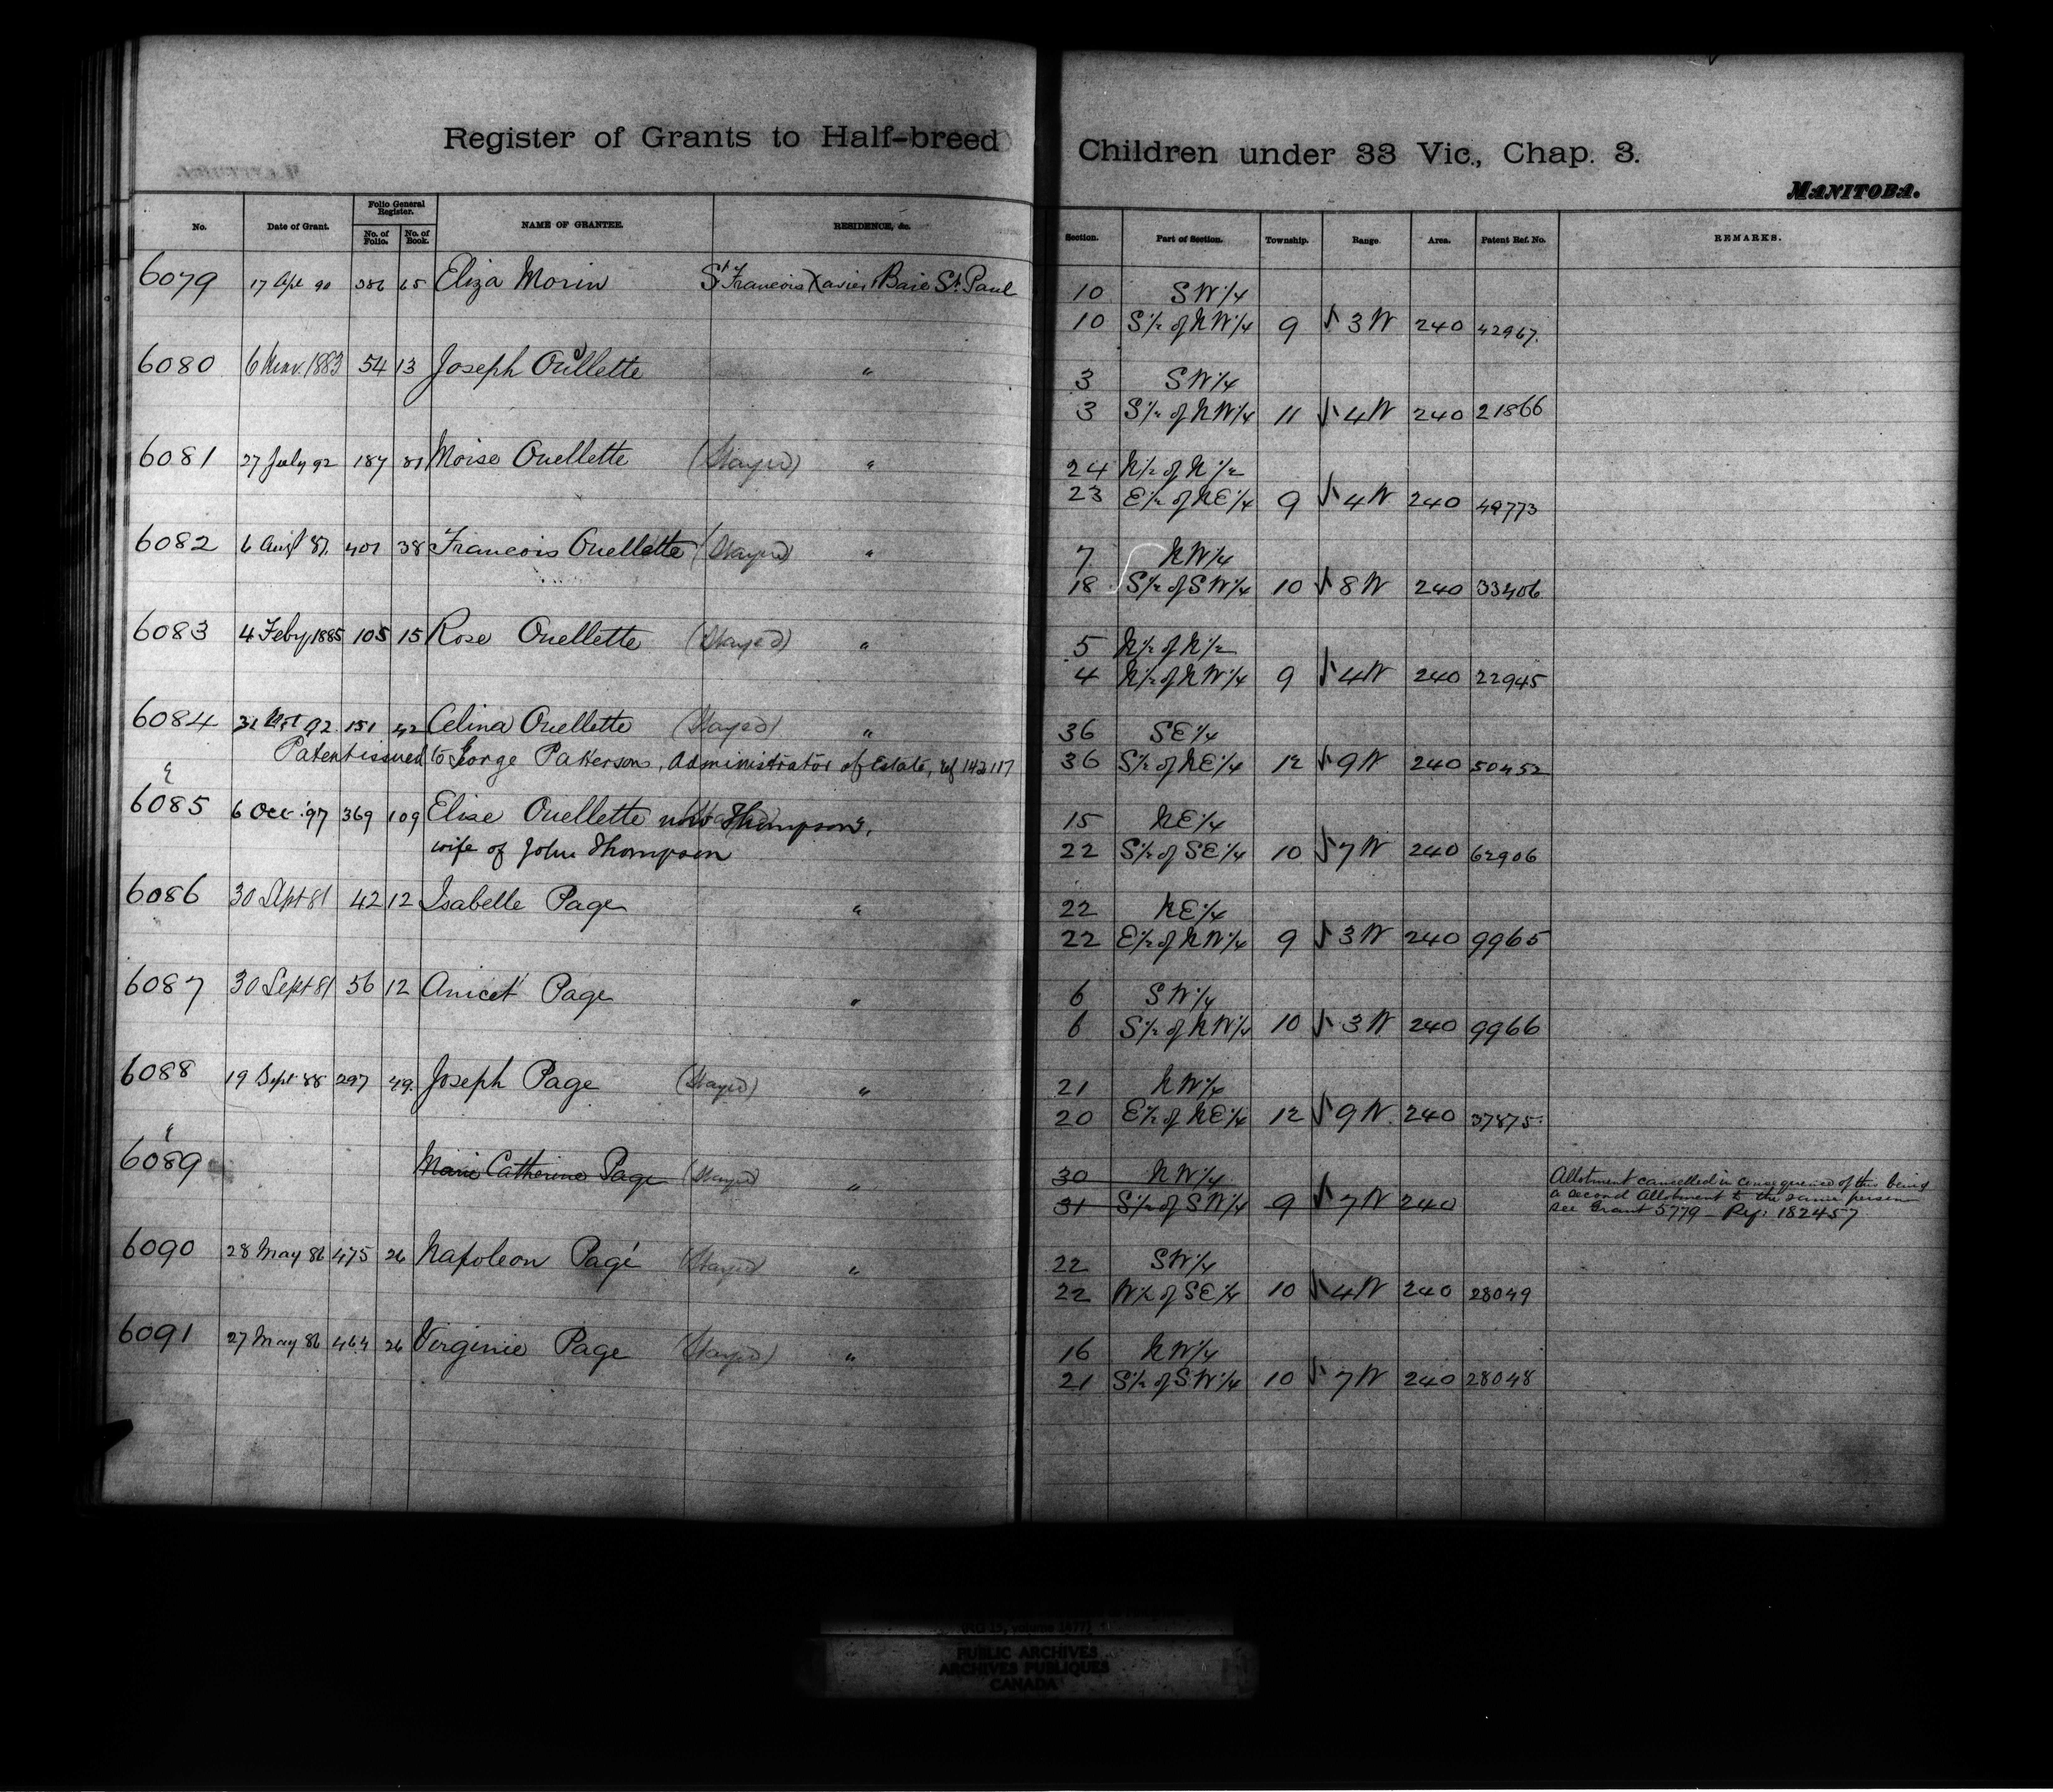 Register of Grants to Half-breed Children under 33 Vic., Chap. 3.
MANITOBA.
No. Date of Grant. Folio General Register. No. of Folio. No. of Book. NAME OF GRANTEE. RESIDENCE, &c. Section. Part of Section. Township. Range. Area. Patent Ref. No. REMARKS.
6079 17 Apl 90 386 65 Eliza Morin St Francois Xavier & Baie St. Paul 10 SW 1/4
10 S 1/2 of NW 1/4 9 √ 3 W 240 42967.
6080 6 1883 54 13 Joseph Ouellette " 3 SW 1/4
3 S 1/2 of NW 1/4 11 √ 4 W 240 21866
6081 27 July 92 187 81 Moise Ouellette (Stayed) " 24 N 1/2 of N 1/2
23 E 1/2 of NE 1/4 9 √ 4 W 240 49773
6082 6 Augt 87. 401 38 Francois Ouellette (Stayed) " 7 NW 1/4
18 S 1/2 of SW 1/4 10 √ 8 W 240 33406
6083 4 Feby 1885 105 15 Rose Ouellette (Stayed) " 5 N 1/2 of N 1/2
4 N 1/2 of NW 1/4 9 √ 4 W 240 22945
6084 31 92 151 42 Celina Ouellette (Stayed) " 36 SE 1/4
Patent issued to George Patterson, Administrator of Estate, ref 142117 36 S 1/2 of NE 1/4 12 √ 9 W 240 50452
6085 6 Oct '97 369 109 Elise Ouellette now Thompson, " 15 NE 1/4
wife of John Thompson 22 S 1/2 of SE 1/4 10 √ 7 W 240 62906
6086 30 Sept 81 42 12 Isabelle Page " 22 NE 1/4
22 E 1/2 of NW 1/4 9 √ 3 W 240 9965
6087 30 Sept 81 56 12 Anicet Page " 6 SW 1/4
6 S 1/2 of NW 1/4 10 √ 3 W 240 9966
6088 19 Sept 88 297 49. Joseph Page (Stayed) " 21 NW 1/4
20 E 1/2 of NE 1/4 12 √ 9 W. 240 37875.
6089 Marie Catherine Page (Stayed) " 30 NW 1/4 Allotment cancelled in consequence of this being
31 S 1/2 of SW 1/4 9 √ 7 W 240 a second Allotment to the same person
see Grant 5779 – Ref: 182457
6090 28 May 86 475 26 Napoleon Pagé (Stayed) " 22 SW 1/4
22 W 1/2 of SE 1/4 10 √ 4 W 240 28049
6091 27 May 86 464 26 Virginie Page (Stayed) " 16 NW 1/4
21 S 1/2 of SW 1/4 10 √ 7 W 240 28048
(RG 15, volume 1477)
PUBLIC ARCHIVES
ARCHIVES PUBLIQUES
CANADA